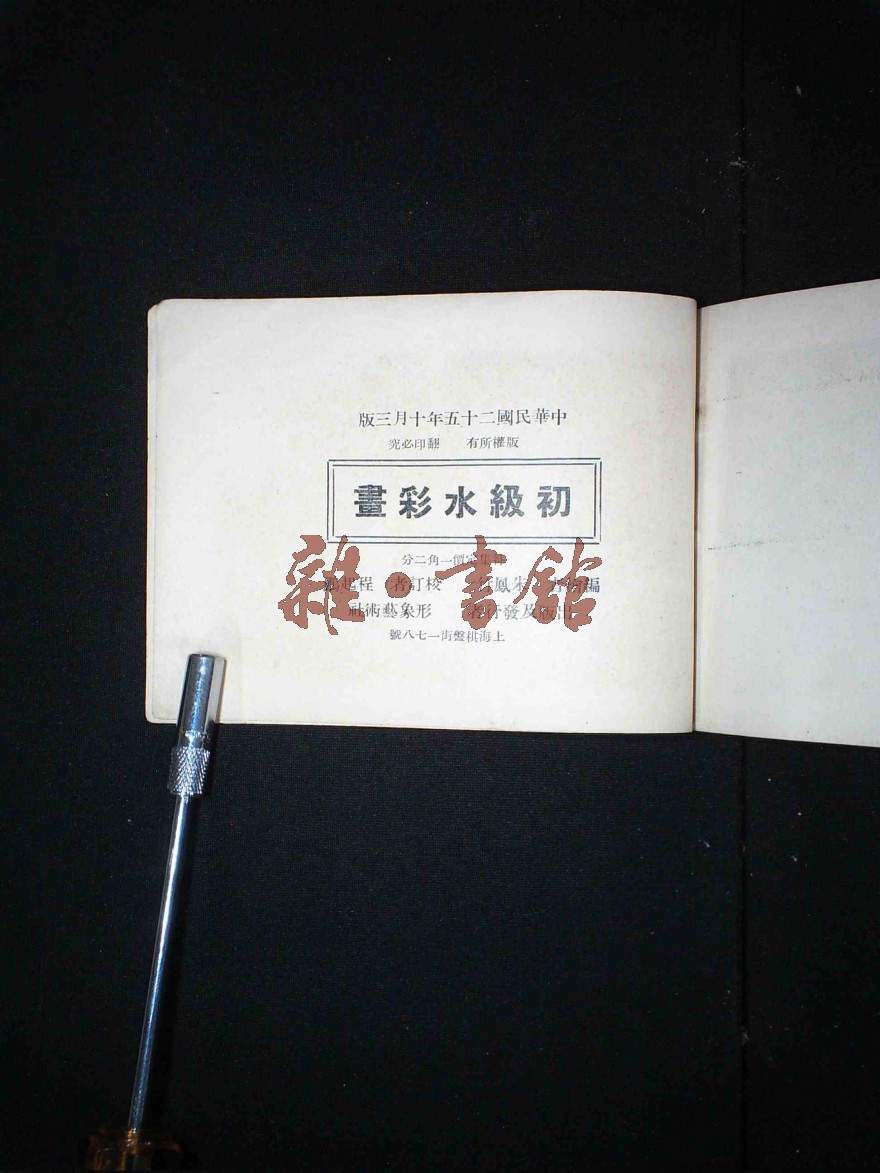 中華民國二十五年十月三版
版權所有 翻印必究
初級水彩畫
每集定價一角二分
編繪者 朱鳳 校訂者 程起
出版及發行者 形象藝術社
上海棋盤街一七八號
雜·書館